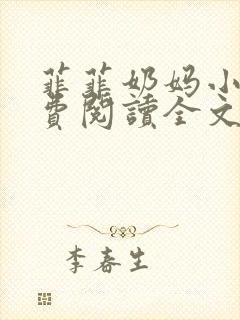 菲菲奶妈小
費閱讀全文
李春生